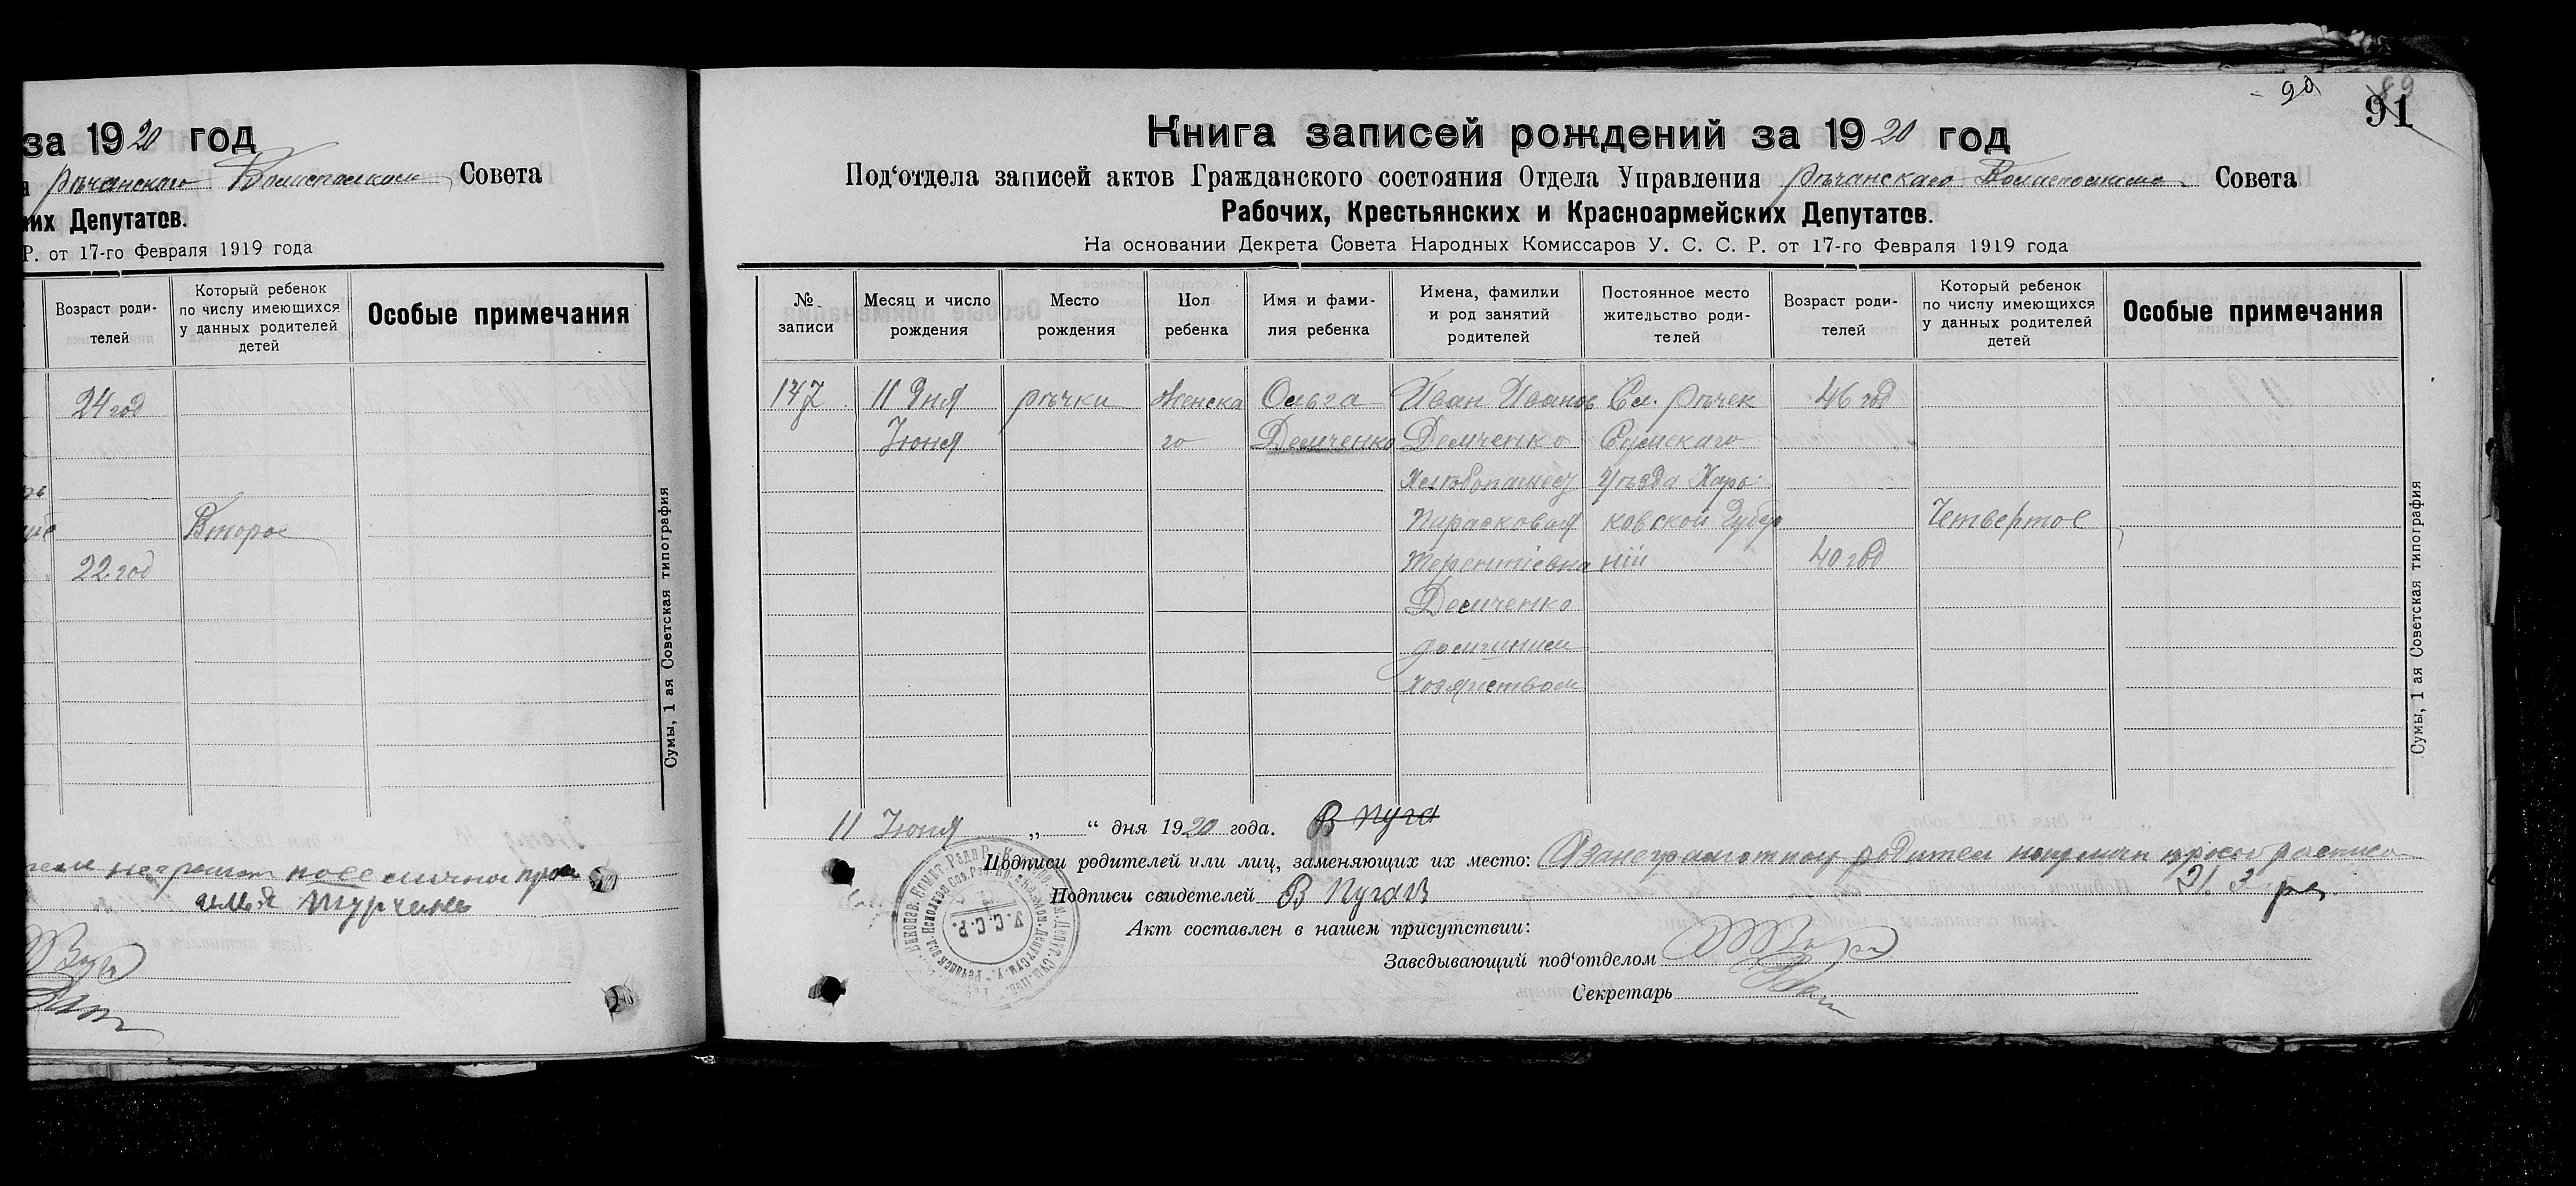 за 1920 год
Рѣчанскаго Волисполком Совета
их Депутатов.
Р. от 17-го Февраля 1919 года
Возраст роди-
телей
Который ребенок
по числу имеющихся
у данных родителей
детей
Особые примечания
24 год
Второе
22 год
Сумы, 1 ая Советская типография
90
89
91
Книга записей рождений за 1920 год
Под‘отдела записей актов Гражданского состояния Отдела Управления Рѣчанскаго Волисполкома Совета
Рабочих, Крестьянских и Красноармейских Депутатов.
На основании Декрета Совета Народных Комиссаров У. С. С. Р. от 17-го Февраля 1919 года
№
записи
Месяц и число
рождения
Место
рождения
Пол
ребенка
Имя и фами-
лия ребенка
Имена, фамилии
и род занятий
родителей
Постоянное место
жительство роди-
телей
Возраст роди-
телей
Который ребенок
по числу имеющихся
у данных родителей
детей
Особые примечания
147 11 дня Рѣчки Женска Ольга Иван Иванов Сл. Рѣчек 46 год
Июня го Демченко Демченко Сумскаго
Хлѣбопашец Уѣзда Харь
Парасковия ковской Губер Четвертое
Терентіевна ніи 40 год
Демченко
домашнием
хозяйством
Сумы, 1 ая Советская типография
11 Июня „ “ дня 1920 года. В Пуга
Подписи родителей или лиц, заменяющих их место:
Подписи свидетелей В Пугав
Акт составлен в нашем присутствии:
Заведывающий под‘отделом
Секретарь
У.С.С.Р.